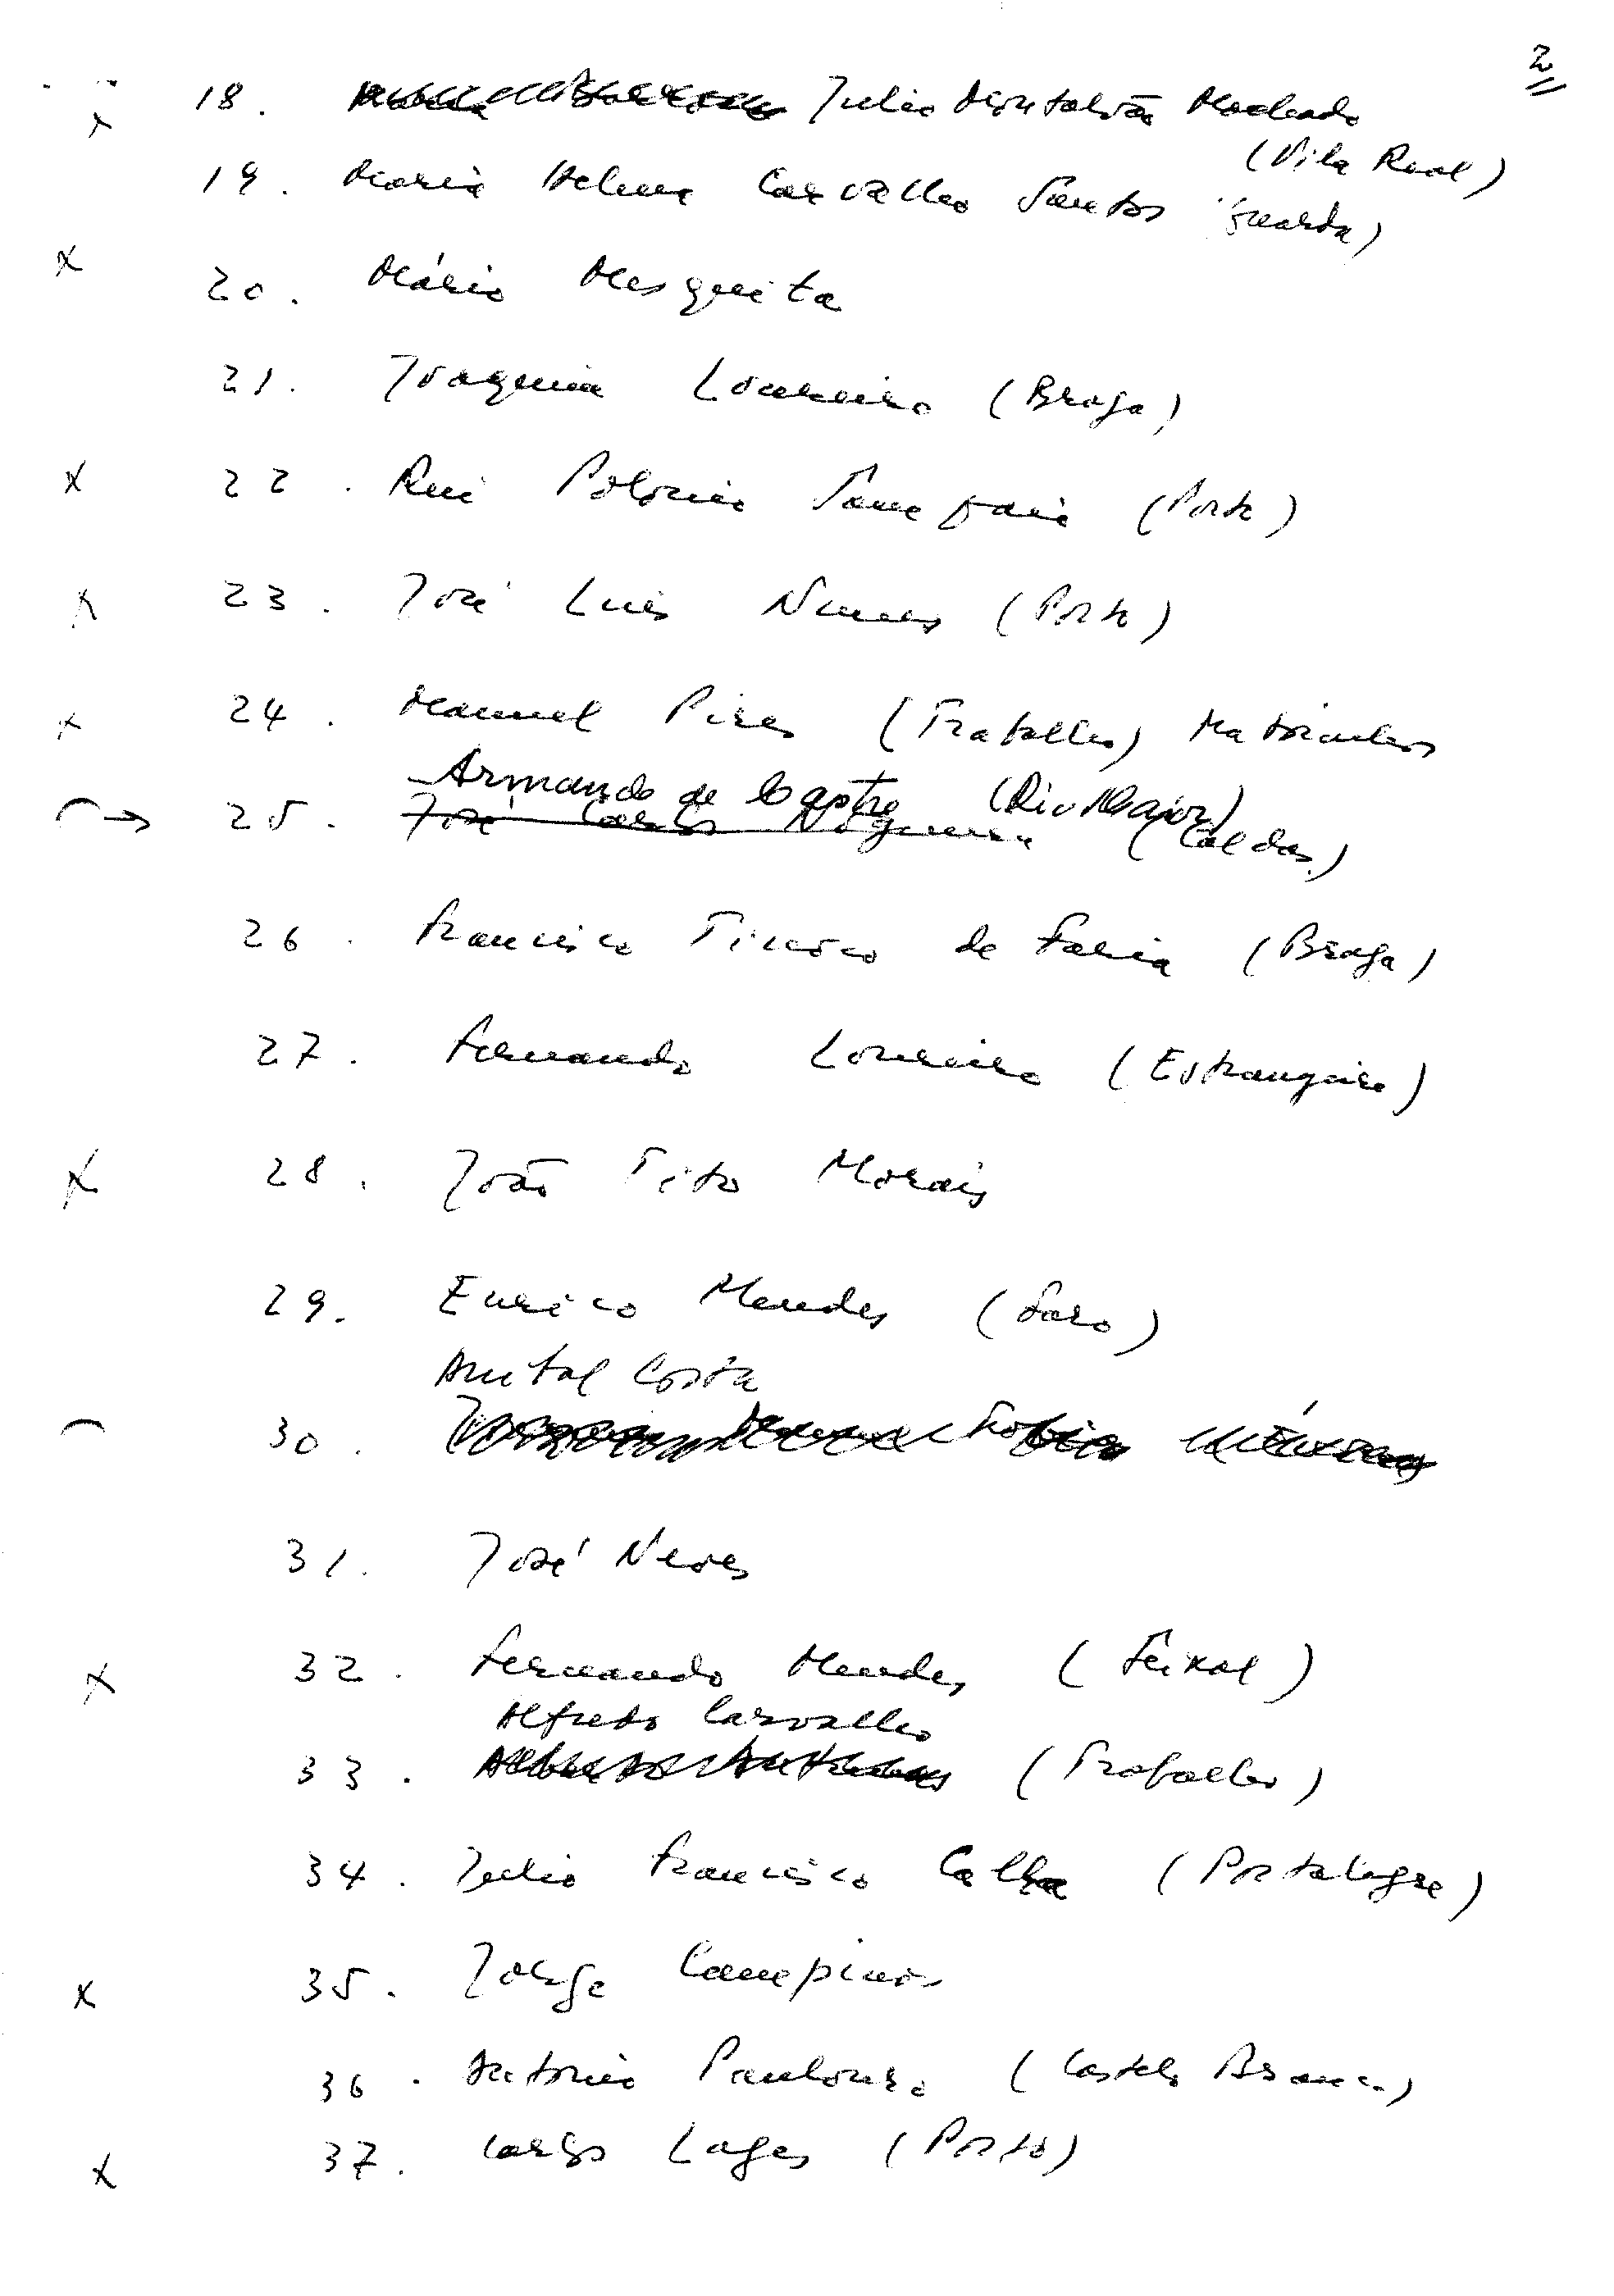 2
x 18. Julio Montalvão Machado
(Vila Real)
19. Maria Helena Carvalho Santos (Guarda)
x 20. Mário Mesquita
21. Joaquim Loureiro (Braga)
x 22. Rui Polonio Sampaio (Porto)
x 23. José Luis Nunes (Porto)
x 24. Manuel Pires (Trabalho) Matosinhos
Armando de Castro (Rio Maior)
→ 25. José Carlos Nogueira (Caldas)
26. Francisco Tinoco de Faria (Braga)
27. Fernando Loureiro (Estrangeiro)
x 28. João Tito Morais
29. Eurico Mendes (Faro)
Anibal Costa
30.
31. José Neves
x 32. Fernando Mendes (Seixal)
Alfredo Carvalho
33. (Trabalho)
34. Julio Francisco Calha (Portalegre)
x 35. Jorge Campinos
36. Antonio Paulouro (Castelo Branco)
x 37. Carlos Lages (Porto)